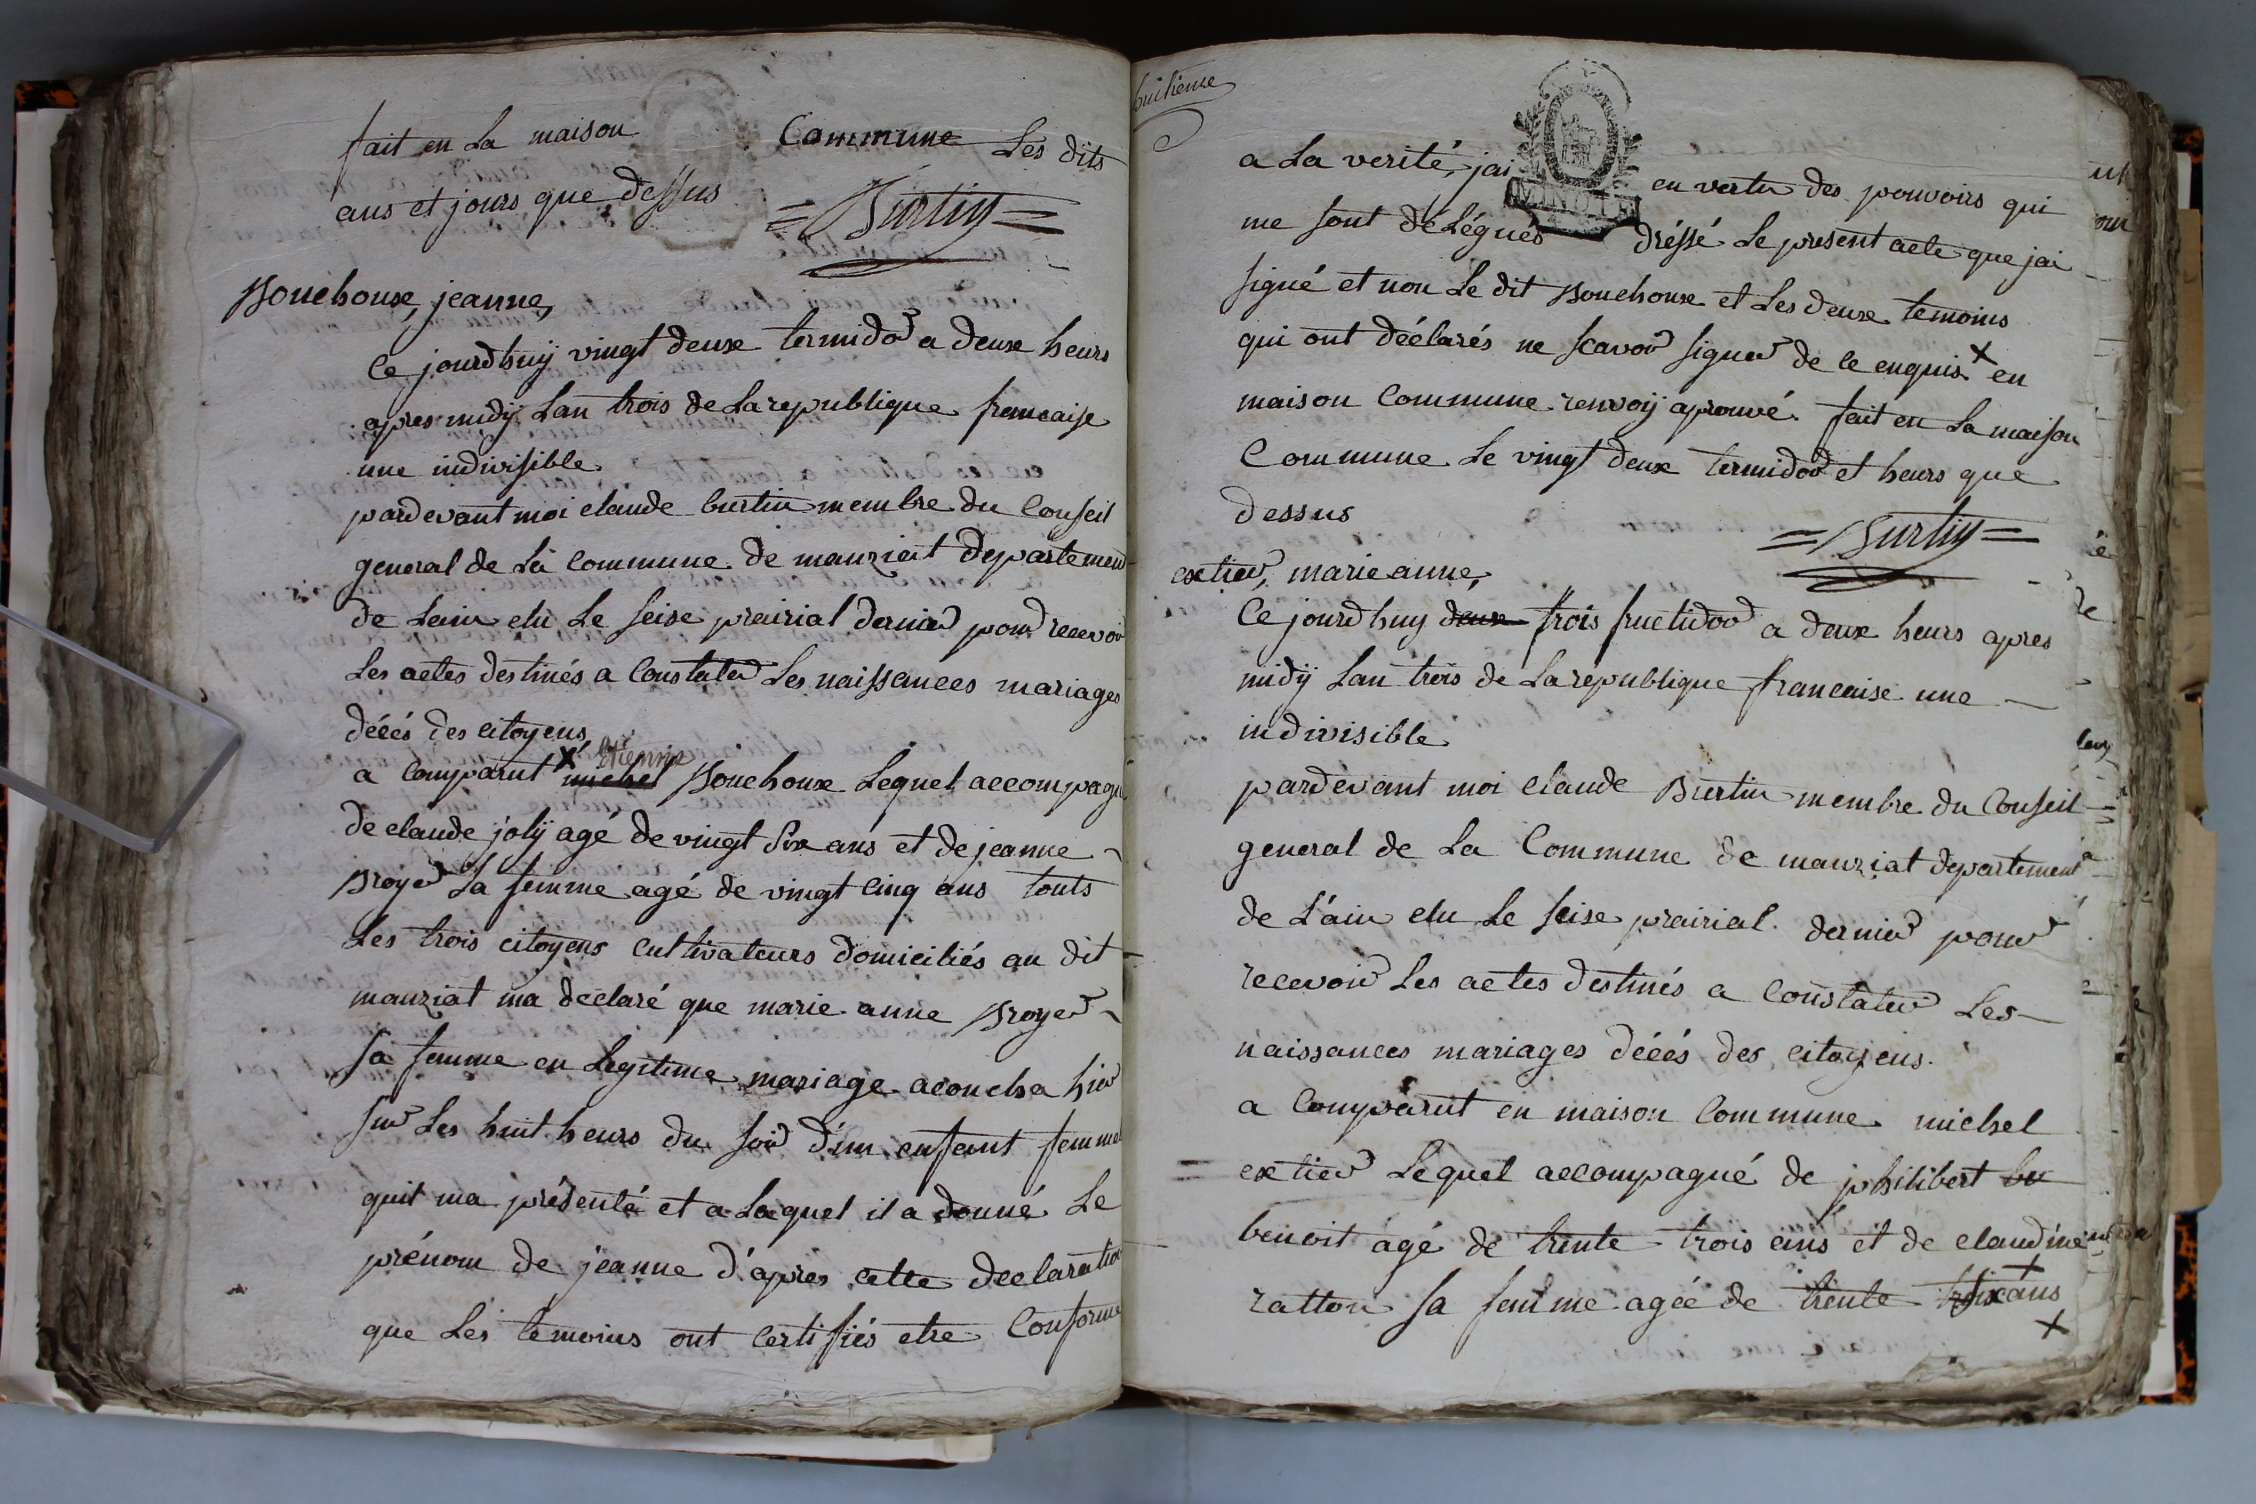 fait en la maison Commune Les dits
ans et jours que dessus
Burtin
Bouchoux, jeanne,
Ce jourdhuij vingt deux termidor a deux heurs
apres midij Lan trois de La republique francaise
une indivisible
pardevant moi claude burtin membre du Conseil
general de La commune de manziat departement
de Lain elu Le seise prairial dernier pour recevoir
Les actes destinés a Constater Les naissances mariages
décés des citoyens
a comparut x michel Etienne Bouchoux Lequel accompagné
de claude jolij agé de vingt six ans et de jeanne
Broyer sa femme agé de vingt cinq ans touts
Les trois citoyens cultivateurs domiciliés au dit
manziat ma déclaré que marie anne Broyer
sa femme en Legitime mariage acoucha hier
sur Les huit heurs du soir d'un enfant femmel
quil ma présenté et a Laquel il a donné Le
prénom de jeanne d'apres cette declaration
que Les temoins ont certifiés etre Conforme
huitieme
a La verité, jai en vertu des pouvoirs qui
me sont délégués dréssé Le present acte que jai
signé et non Le dit Bouchoux et Les deux temoins
qui ont déclarés ne scavoir signer de ce enquis x en
maison Commune renvoij aprouvé. fait en La maison
Commune Le vingt deux termidor et heurs que
dessus
Burtin
extier, marie anne,
Ce jourdhuy deux trois fructidor a deux heurs apres
midij Lan trois de La republique francaise une
indivisible
pardevant moi claude Burtin membre du Conseil
general de La Commune de manziat departement
de L'ain elu Le seise prairial dernier pour
recevoir Les actes destinés a constater Les
naissances mariages décés des citoyens.
a Comparut en maison Commune michel
extier Lequel accompagné de philibert be
benoit agé de trente trois ans et de claudine
ratton sa femme agée de trente six ans x
x